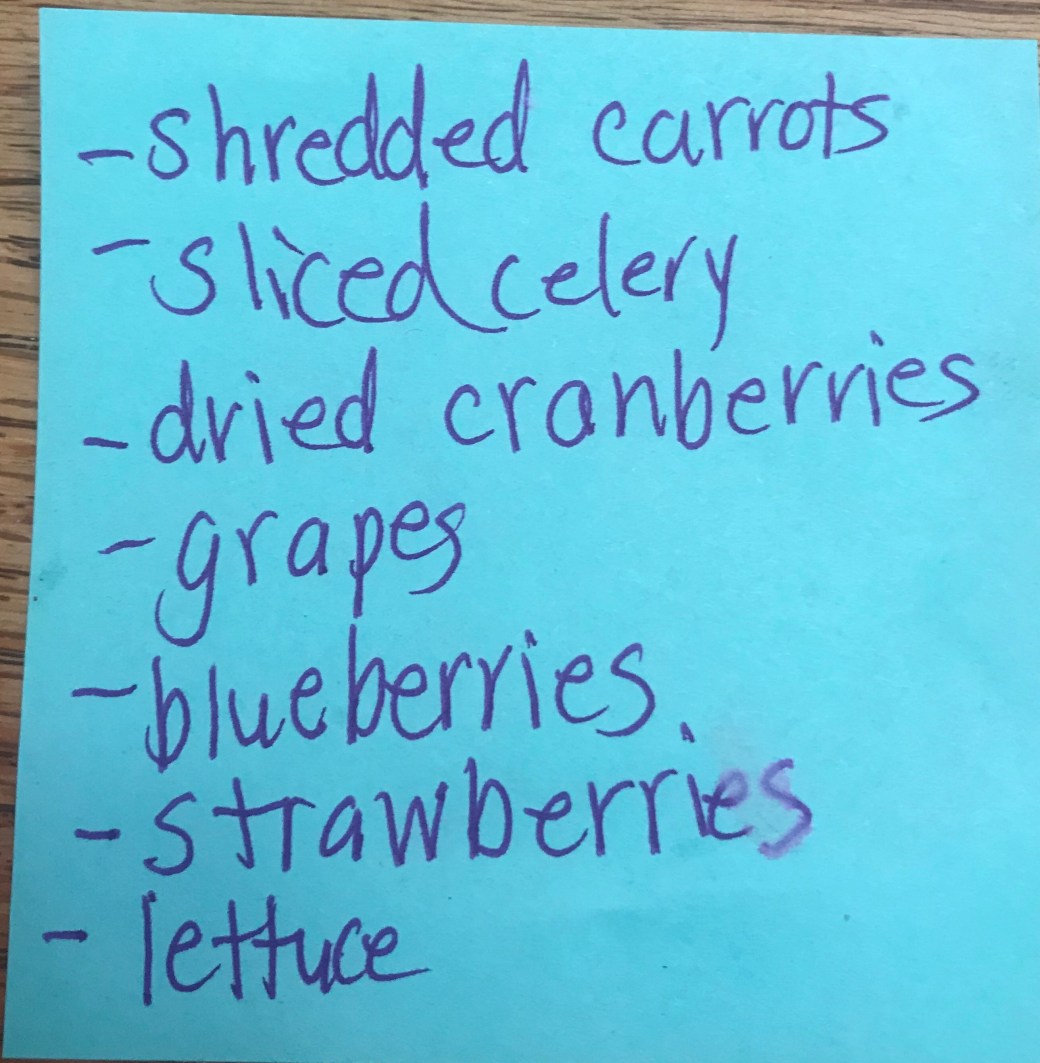 - shredded carrots
- sliced celery
- dried cranberries
- grapes
- blueberries
- strawberries
- lettuce